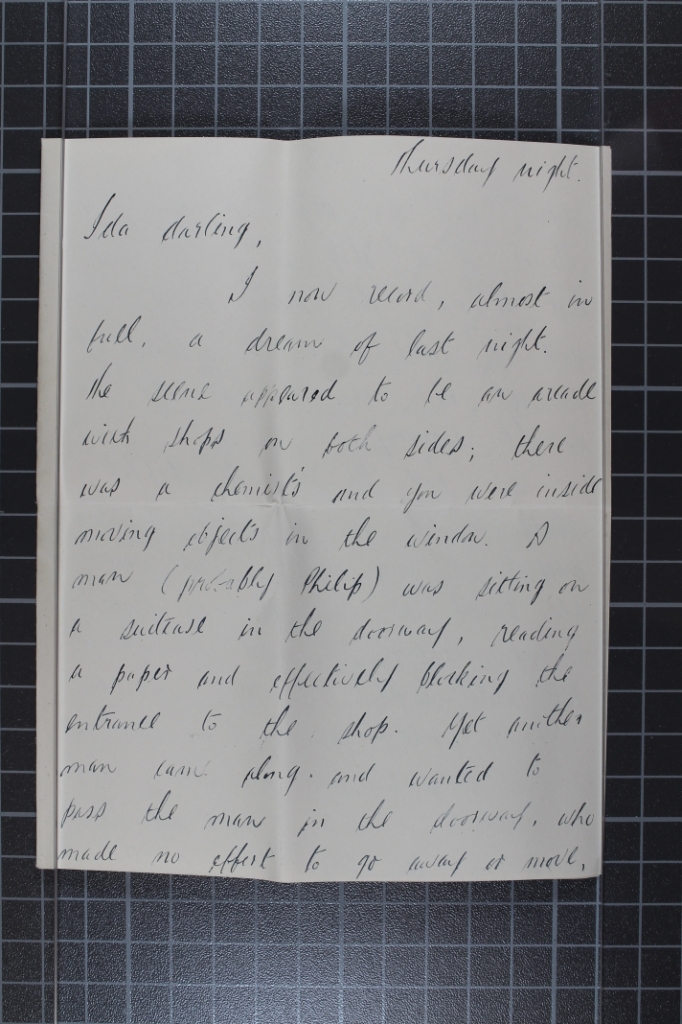 Thursday night.
Ida darling,
I now record, almost in
full, a dream of last night.
The scene appeared to be an arcade
with shops on both sides; there
was a chemist's and you were inside
moving objects in the window. A
man (probably Philip) was sitting on
a suitcase in the doorway, reading
a paper and effectively blocking the
entrance to the shop. Yet another
man came along and wanted to
pass the man in the doorway, who
made no effort to go away or move,